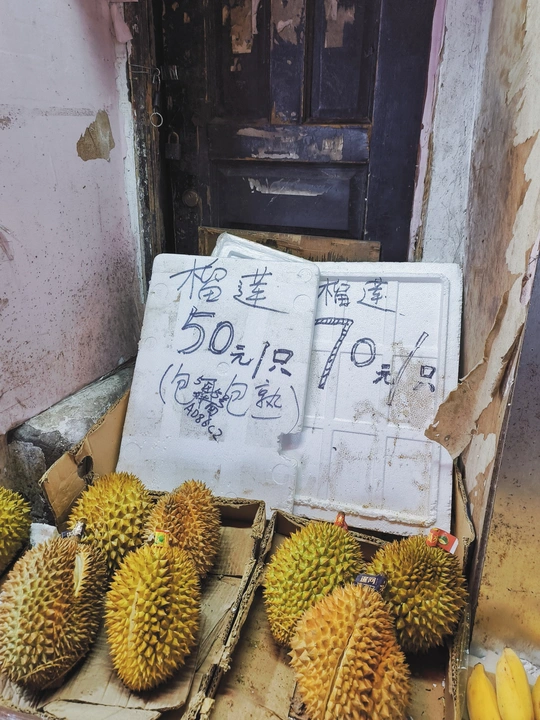 榴莲
50元/只
(包甜包熟)
榴莲
70元/只